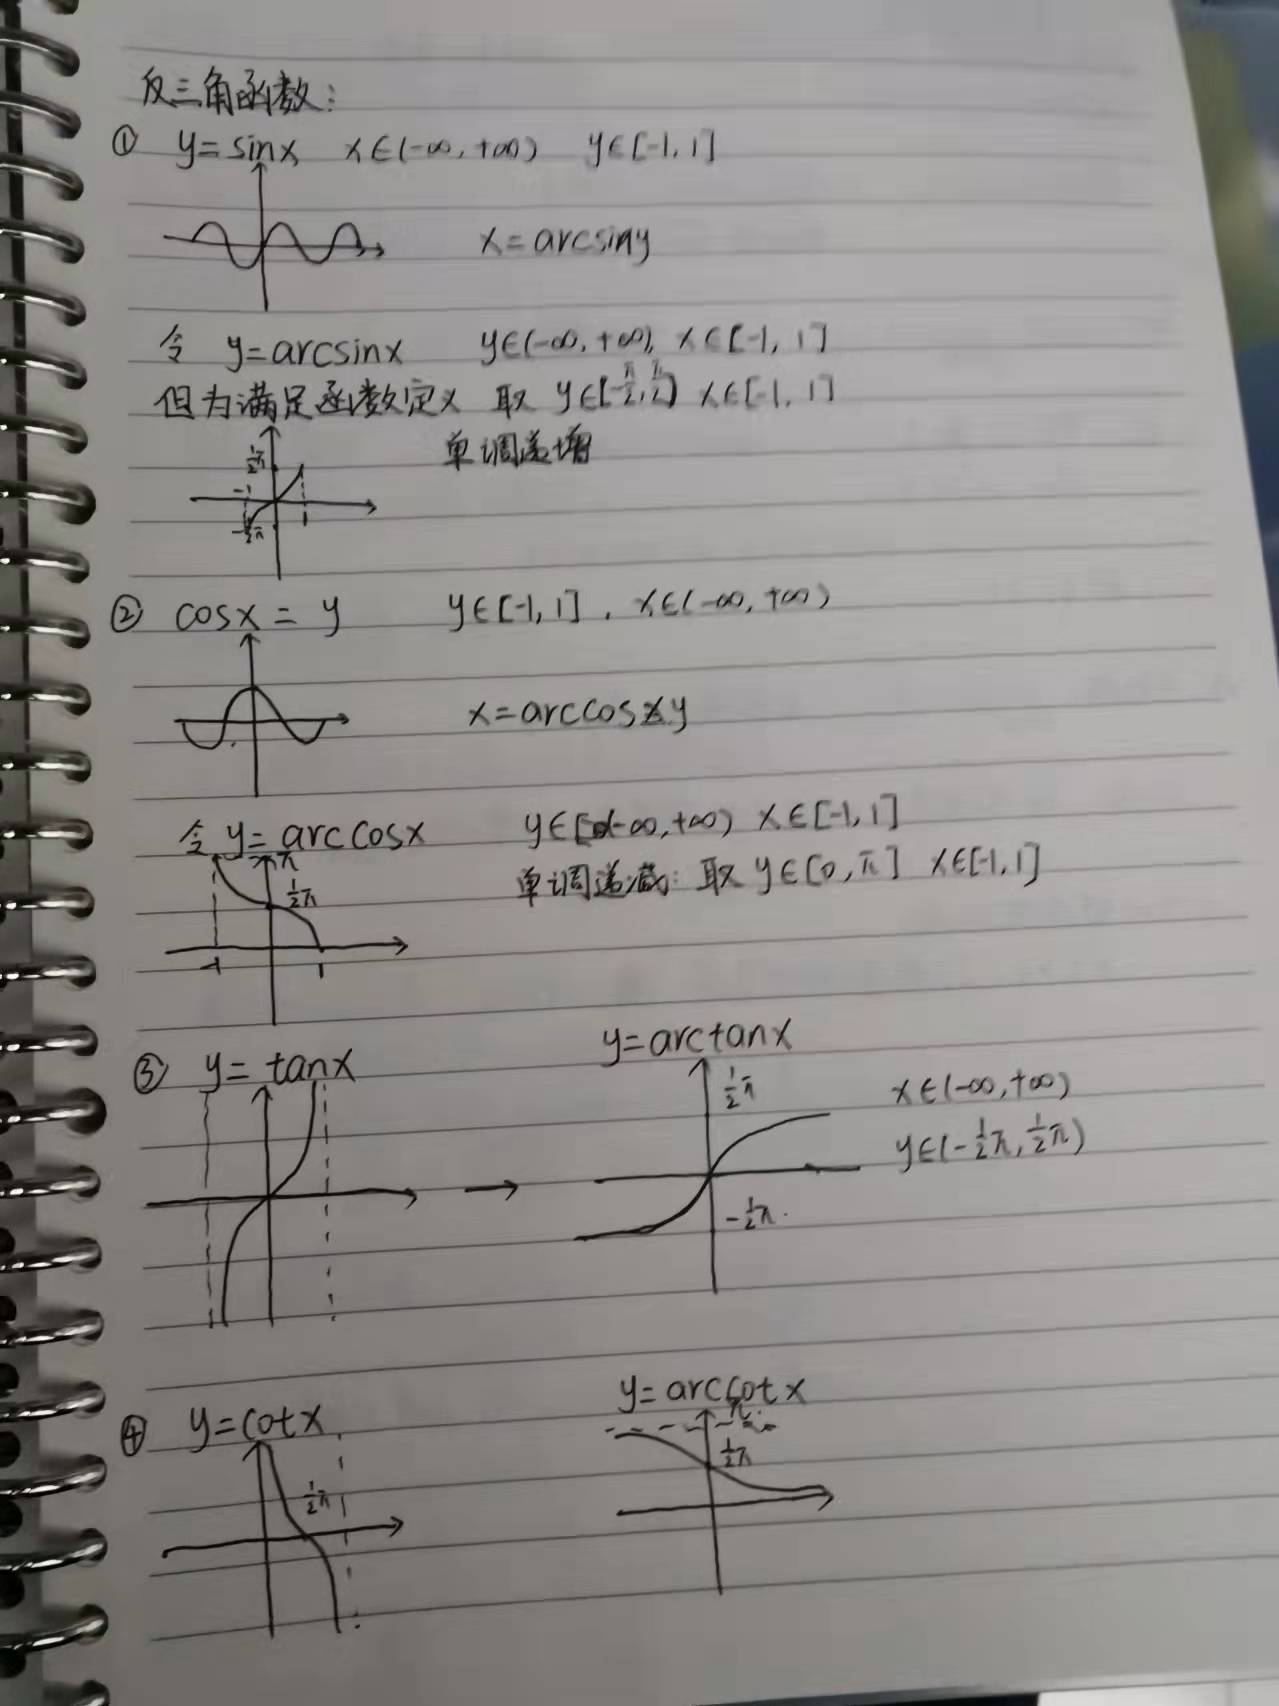 反三角函数：
① y=sinx x∈(-∞,+∞) y∈[-1,1]
x=arcsiny
令 y=arcsinx y∈(-∞,+∞), x∈[-1,1]
但为满足函数定义 取 y∈[-π/2,π/2] x∈[-1,1]
单调递增
½π
-1
1
-½π
② cosx = y y∈[-1,1], x∈(-∞,+∞)
x=arccos y
令 y=arccosx y∈(-∞,+∞) x∈[-1,1]
单调递减: 取 y∈[0,π] x∈[-1,1]
π
½π
-1 1
③ y=tanx
y=arctanx
½π
x∈(-∞,+∞)
y∈(-½π,½π)
-½π
④ y=cotx
½π
y=arccotx
π
½π